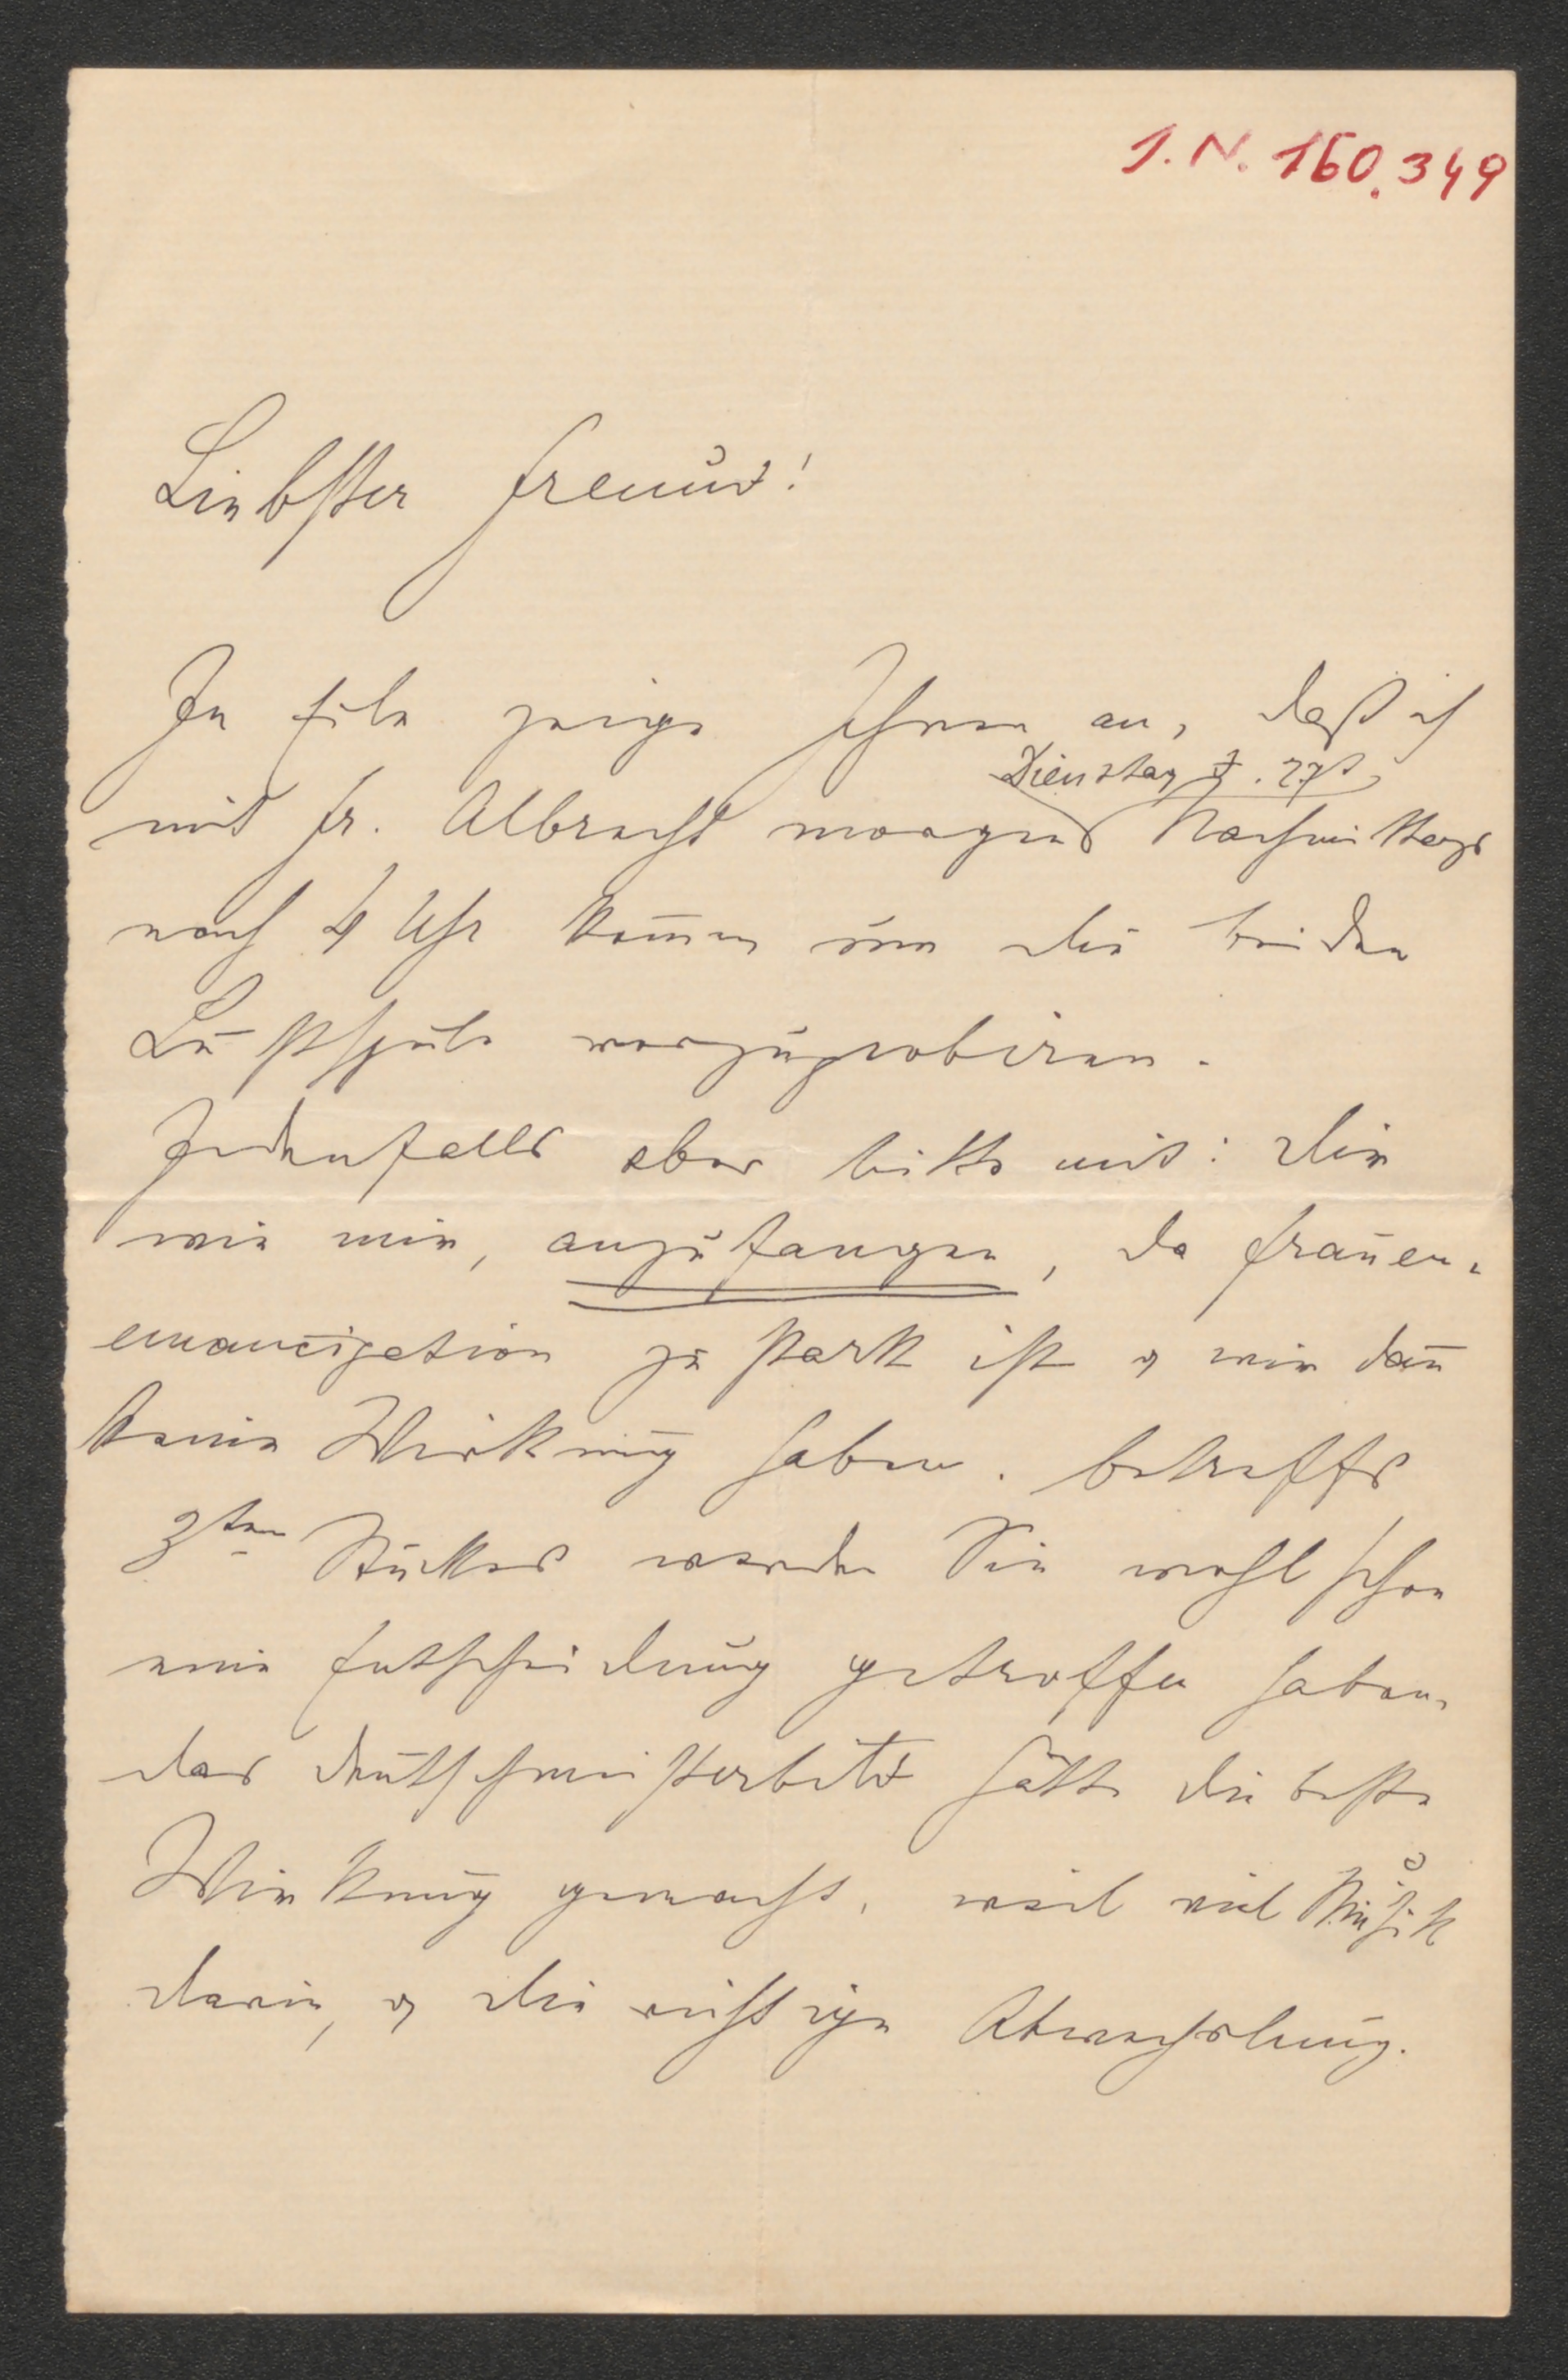 I.N. 160.349
Liebster Freund!
In Eile zeige Ihnen an, daß ich
Dienstag d. 27t
mit Fr. Albrecht morgen Nachmittags
nach 4 Uhr kom̄en um die beiden
Lustspiele vorzuprobiren.
Jedenfalls aber bitte mit: Die
wie mir, anzufangen, da Frauen-
emancipation zu stark ist & wir dan̄
keine Wirkung haben. betreffs
3ten Stückes werden Sie wohl schon
eine Entscheidung getroffen haben,
das Deutschmeisterbild hätte die beste
Wirkung gemacht, weil viel Musik
darin, & die richtige Abwechslung.